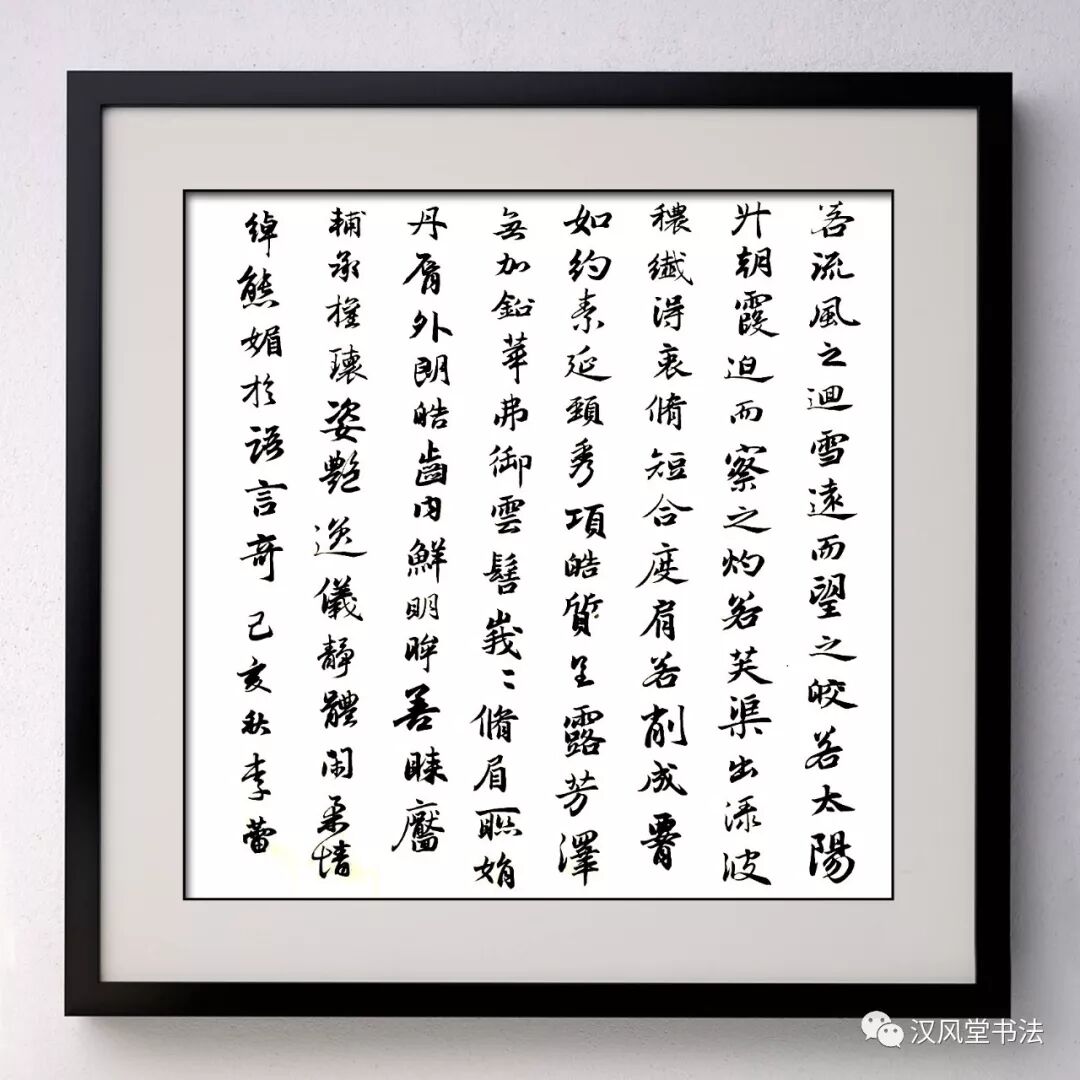 若流風之迴雪遠而望之皎若太陽
升朝霞迫而察之灼若芙渠出渌波
穠纖得衷脩短合度肩若削成腰
如約素延頸秀項皓質呈露芳澤
無加鉛華弗御雲髻峩〻脩眉聯娟
丹脣外朗皓齒内鮮明眸善睞靨
輔承權瓌姿艷逸儀靜體閑柔情
綽態媚於語言奇 己亥秋李蕾
汉风堂书法